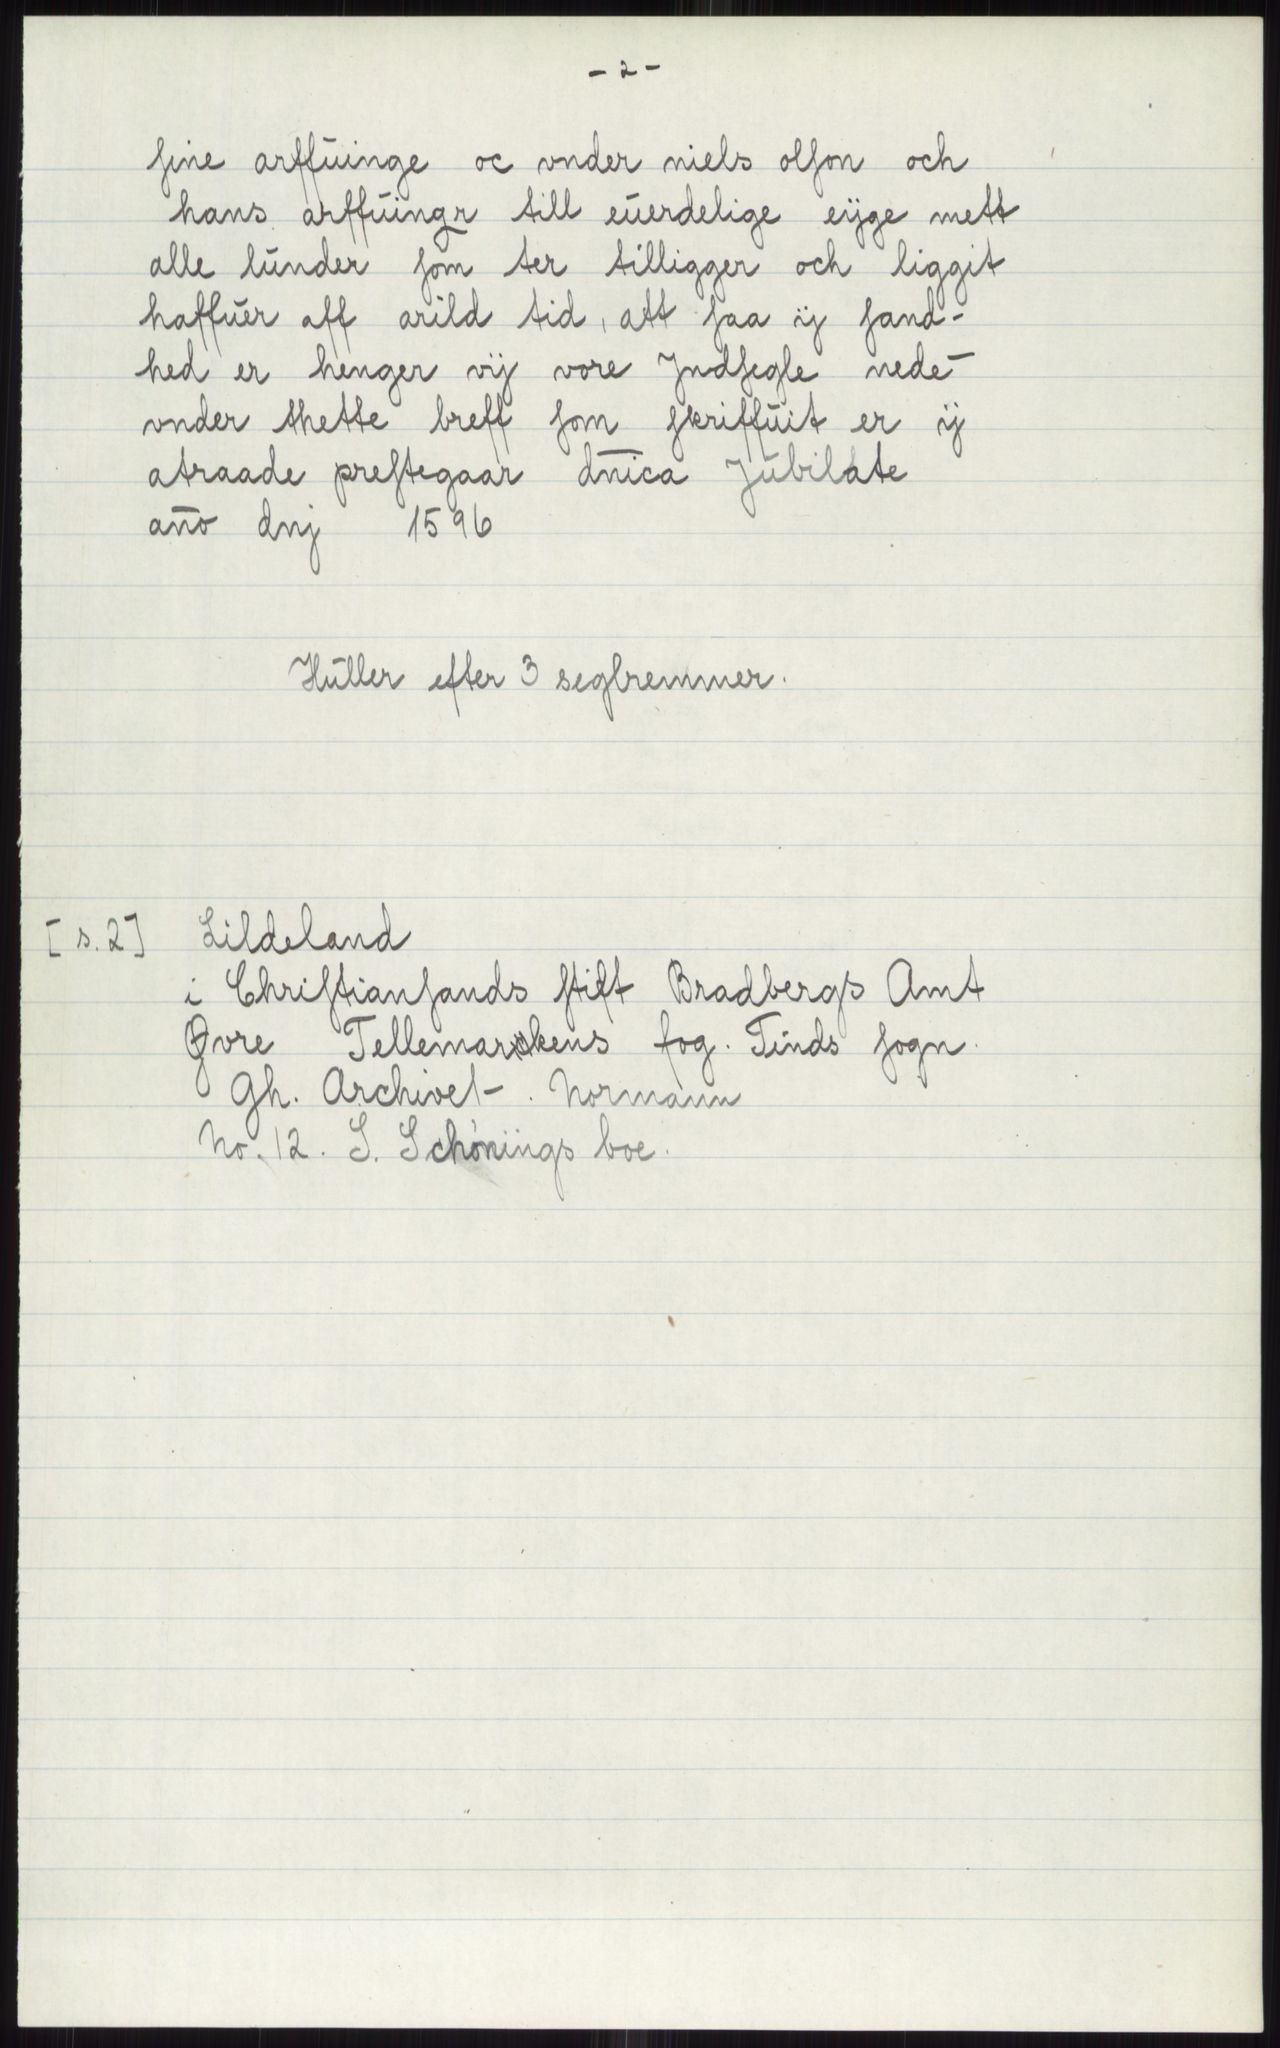 - 2 -
ſine arffŭinge oc vnder niels olſon och
hans arffŭingr till eŭerdelige eÿge mett
alle lŭnder ſom ter tilligger och liggit
haffŭer aff arild tid, att ſaa ij ſand-
hed er henger vij vore Jndſegle nede-
vnder thette breff ſom ſkriffŭit er ij
atraade preſtegaar dn̄ica Jŭbilate
an̄o dnj 1596
Hŭller efter 3 seglremmer.
[s. 2] Lildeland
i Chriſtianſands ſtift Bradbergs Amt
Øvre Tellemarckens fog. Tinds ſogn.
Gh. Archivet - . Normann
No. 12. S. Schönings boe.